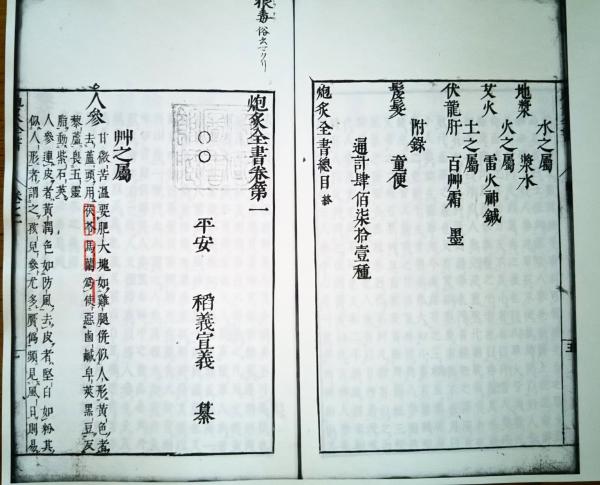 水之屬
地漿 漿水
火之屬
艾火 雷火神鍼
土之屬
伏龍肝 百艸霜 墨
附錄
髮髲 童便
通計肆佰柒拾壹種
炮炙全書總目 終
炮炙全書卷第一
○○ 平安 稻義宣義 纂
艸之屬
人參 甘微苦溫要肥大塊如雞腿併似人形黃色者
去蘆頭用茯苓馬藺爲使惡鹵鹹皁莢黑豆反
藜蘆畏五靈
脂動紫石英
人參連皮者黃潤色如防風去皮者堅白如粉其
似人形者謂之孩兒參尤多贋僞頻見風日則易